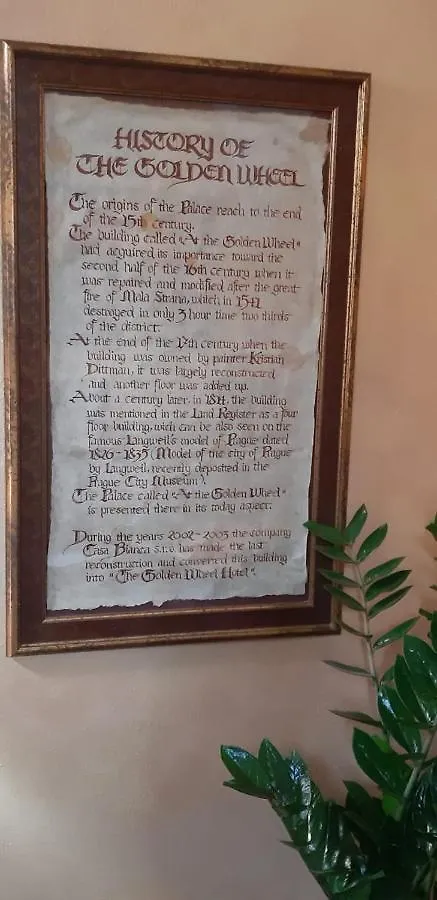 HISTORY OF
THE GOLDEN WHEEL
The origins of the Palace reach to the end
of the 15th century.
The building called "At the Golden Wheel"
had acquired its importance toward the
second half of the 16th century when it
was repaired and modified after the great
fire of Mala Strana, which in 1541
destroyed in only 3 hour time two thirds
of the district.
At the end of the 17th century when the
building was owned by painter Kristian
Dittman, it was largely reconstructed
and another floor was added up.
About a century later, in 1811, the building
was mentioned in the Land Register as a four
floor building, wich can be also seen on the
famous Langweil's model of Prague dated
1826 - 1835 (Model of the city of Prague
by Langweil, recently deposited in the
Prague City Museum).
The Palace called "At the Golden Wheel"
is presented there in its today aspect.
During the years 2002 - 2003 the company
Casa Bianca s.r.o. has made the last
reconstruction and converted this building
into "The Golden Wheel Hotel".